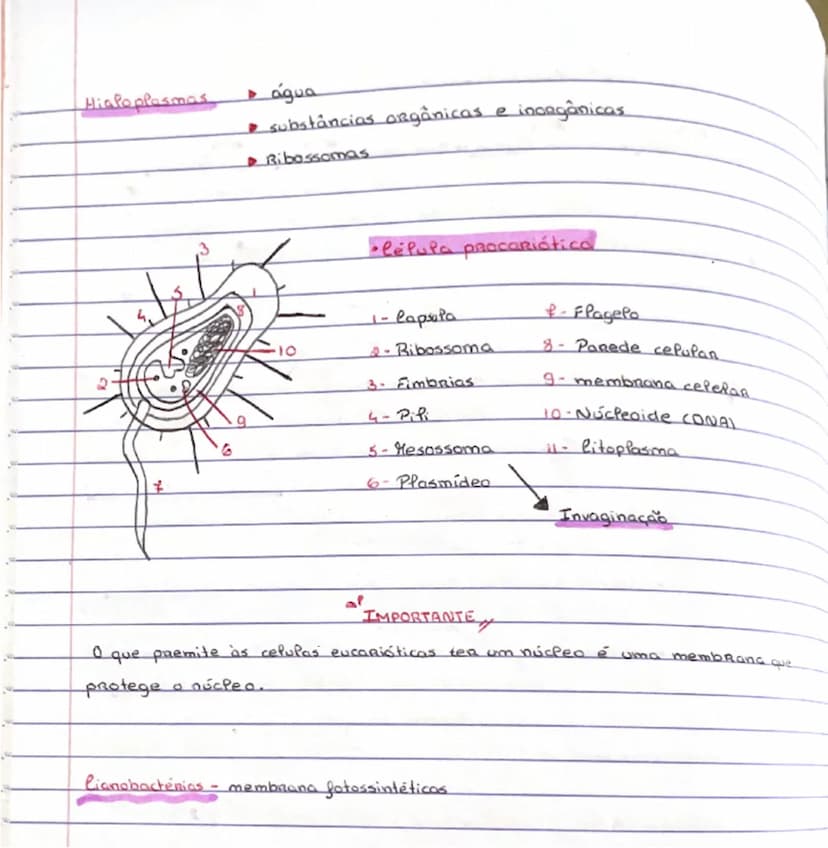 Hialoplasmas ▸ água
▸ substâncias orgânicas e inorgânicas
▸ Ribossomas
• Célula procariótica
3
5
1
4
8
10
2
9
6
7
1 - Capsula
2 - Ribossoma
3 - Fimbrias
4 - Pili
5 - Mesossoma
6 - Plasmídeo
7 - Flagelo
8 - Parede celular
9 - membrana celelar
10 - Núcleoide (DNA)
11 - Citoplasma
Invaginação
IMPORTANTE
O que premite às celulas eucarióticas ter um núcleo é uma membrana que
protege o núcleo.
Cianobactérias - membrana fotossintéticas